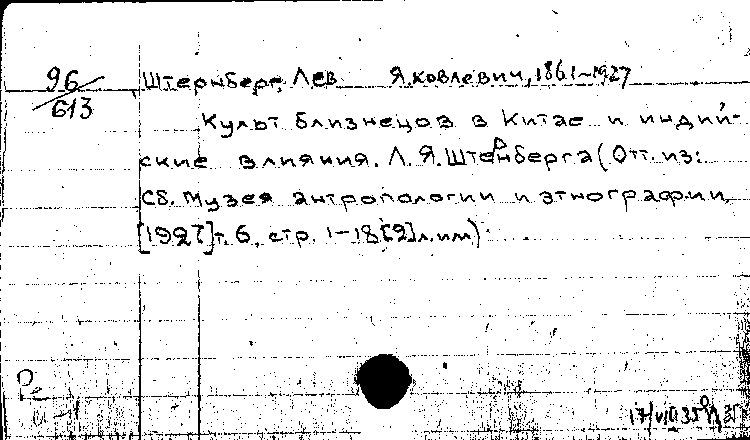 96/613
Штернберг, Лев Яковлевич, 1861-1927
Культ близнецов в Китае и индий-
ские влияния. Л. Я. Штернберга (Отт. из:
Сб. Музея антропологии и этнографии,
[1927] т. 6, стр. 1-18 [2] л. им)
Ре
17/VIII 35